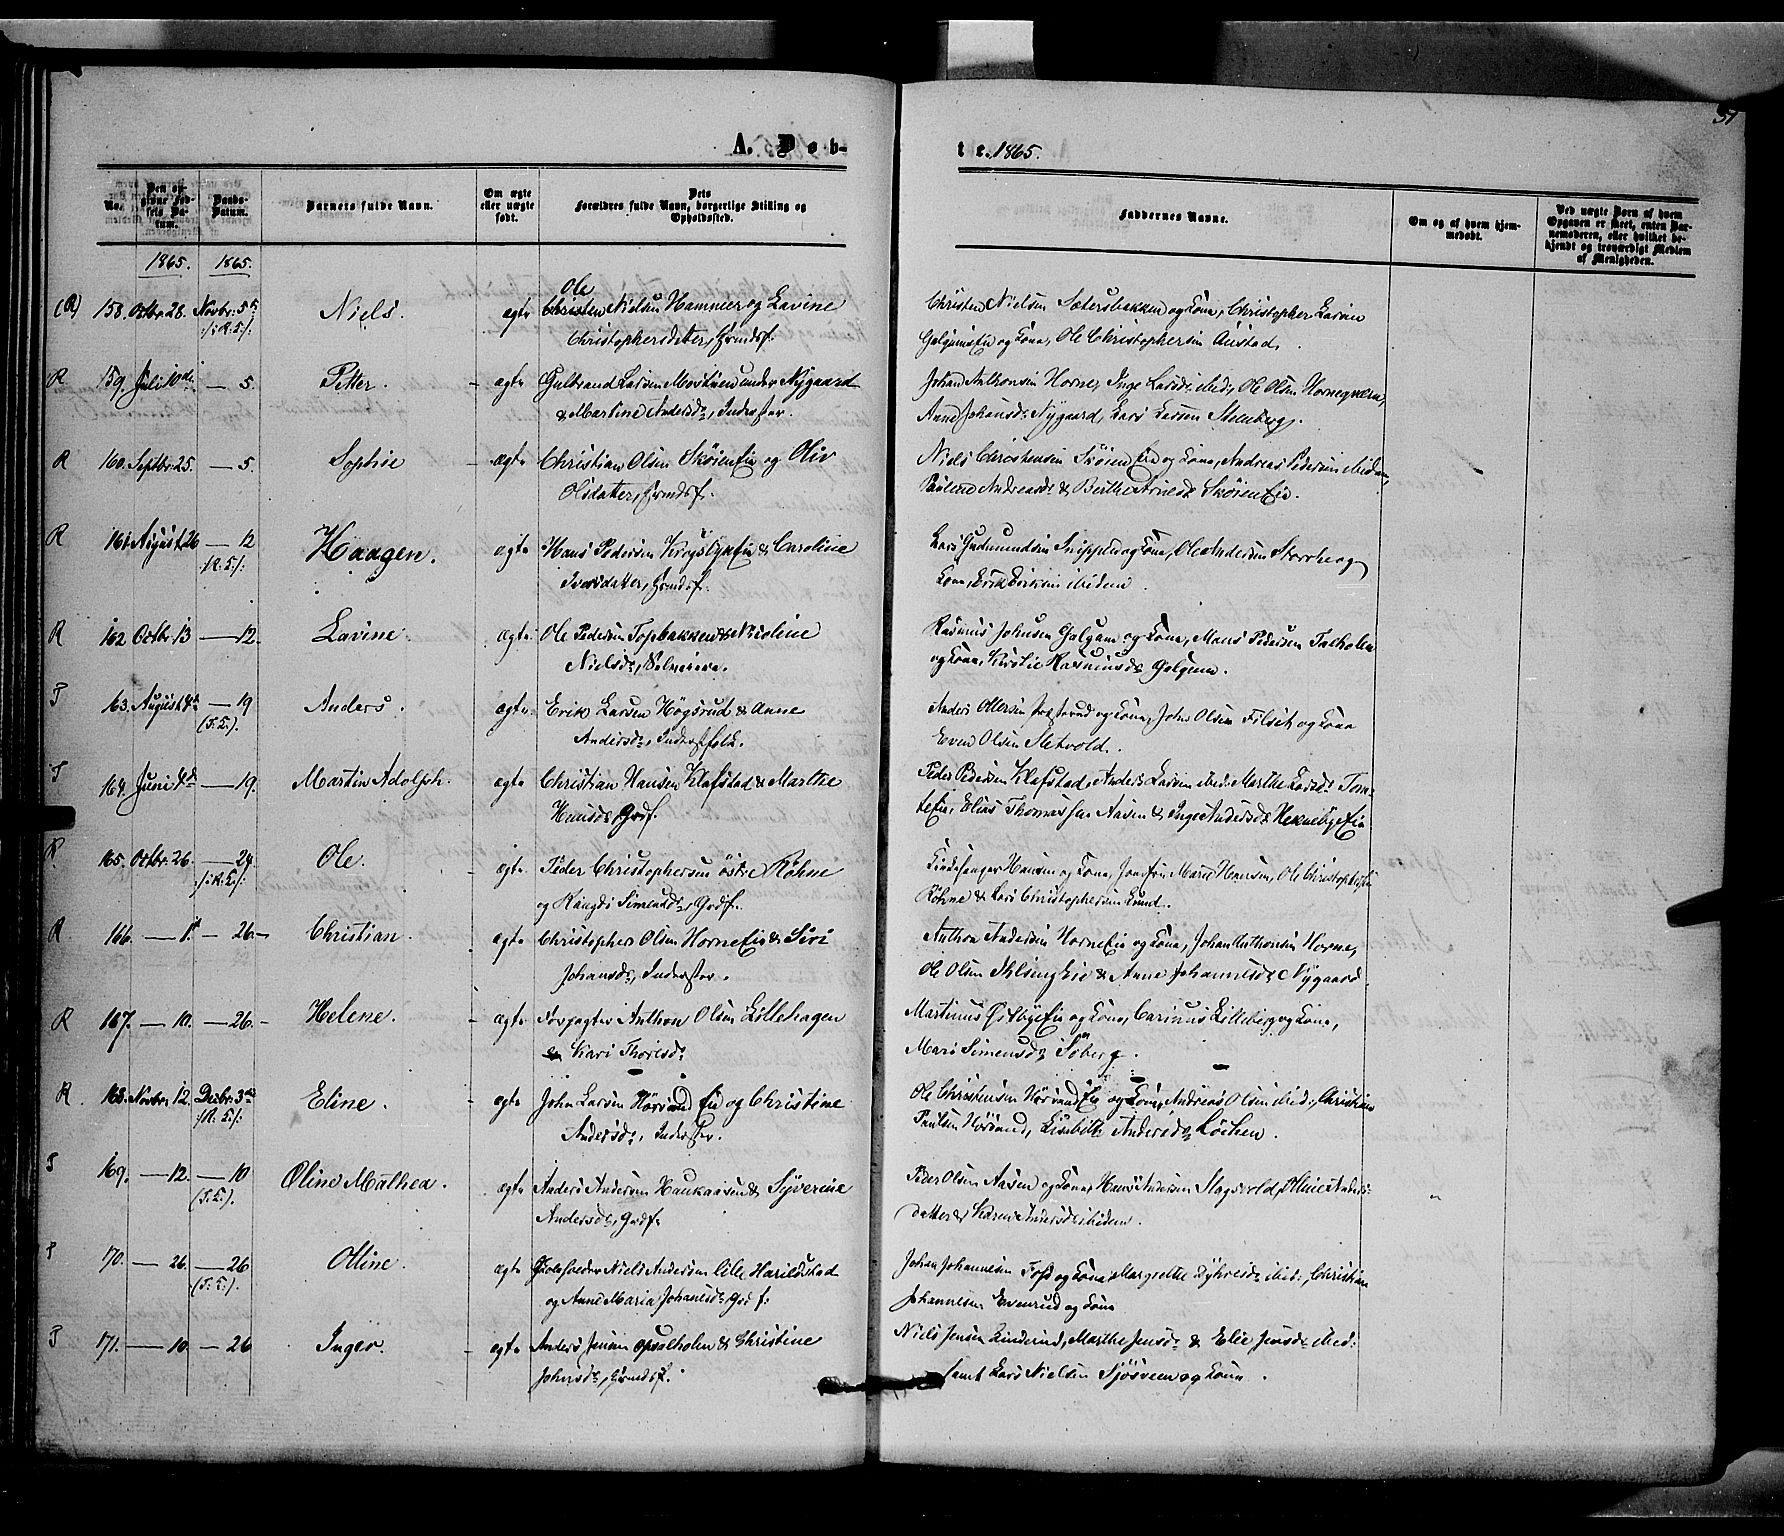 A. Døb-
te. 1865.
37
No.
Den op-
givne Fød-
sels Da-
tum.
Daabs-
Datum.
Barnets fulde Navn.
Om ægte
eller uægte
født.
Dets
Forældres fulde Navn, borgerlige Stilling og
Opholdssted.
Faddernes Navne.
Om og af hvem hjem-
medøbt.
Ved uægte Børn af hvem
Opgaven er skeet, enten Bar-
nemoderen, eller hvilket be-
kjendt og troværdigt Medlem
af Menigheden.
1865. 1865.
(R) 158. Octbr. 28. Novbr. 5 Niels. ægte Ole
Christen Nielsen Hammer og Lavine
Christophersdatter, Grmdsf.
Christen Nielsen Sætersbakken og Kone, Christopher Larsen
Galgumseie og Kone, Ole Christophersen Austad.
R 159. Juli 10de — 5. Petter. - ægte Gulbrand Larsen Mostuen under Nygaard
& Martine Andersd., Inderster.
Johan Anthonsen Horne, Inge Larsd. ibid., Ole Olsen Horneqvern,
Anne Johansd. Nygaard, Lars Larsen Stenberg.
R 160. Septbr. 25. — 5. Sophie - ægte Christian Olsen Skøien Eie og Oliv
Olsdatter, Grmdsf.
Niels Christensen Skøien Eie og Kone, Andreas Pedersen ibidem,
Pauline Andreasd. & Berthe Arnesd. Skøien Eie.
R 161. August 26 — 12 /:R.S./: Haagen. ægte Hans Pedersen Krogsbyeie & Caroline
Iversdatter, Grmdsf.
Lars Gudmundsen Snippen og Kone, Ole Andersen Storrberg
Kone, Erik Eriksen ibidem.
R 162 Octbr. 13 — 12. Lavine. ægte Ole Pedersen Topbakken & Nicoline
Nielsd., Selveiere.
Rasmus Johnsen Galgum og Kone, Mons Pedersen Talholen
og Kone, Kirstie Rasmusd. Galgum.
T 163. August — 19 Anders. ægte Erik Larsen Høgsrud & Anne
Andersd., Inderstfolk.
Anders Ottersen Præsterud og Kone, John Olsen Filset og Kone
Even Olsen Sletvold.
T 164. Juni 4de — 19. Martin Adolph. ægte Christian Hansen Klafstad & Marthe
Hansd., Grdf.
Peder Pedersen Klafstad, Anders Larsen ibid., Marthe Larsd. Tom-
teeie, Elias Thomassen Aasen & Inge Andersd. Hekneby Eie
165. Octbr. 26. — 24. Ole. ægte Peder Christophersen østre Røhne
og Rangdi Simensd., Grdf.
Kirkesanger Hansen og Kone, Jomfru Marie Hansen, Ole Christophersen
Røhne & Lars Christophersen Lund.
R 166. — 1. — 26. - Christian. ægte Christopher Olsen Horne Eie & Siri
Johansd., Inderster.
Anthon Andersen Horne Eie og Kone, Johan Anthonsen Horne,
Ole Olsen Eie & Anne Johannesd. Nygaard
R 167. — 10. — 26. - Helene. - ægte Forpagter Anthon Olsen Lillehagen
& Kari Thoresd.
Martinus Østbyeie og Kone, Carinus Lilleberg og Kone,
Mari Simensd. Søberg.
R. 168. Novbr. 12. Decbr. 3 Eline. ægte John Larsen Hørsand Eie og Christine
Andersd., Inderster.
Ole Christensen Hørsand Eie og Kone, Andreas Olsen ibid., Christian
Paulsen Hørsand, Lisabeth Andersd. Løken.
169. — 12. — 10 Oline Mathea. ægte Anders Andersen Haukaasen & Syverine
Andersd., Grdf.
Peder Olsen Aasen og Kone, Hans Andersen Slagsvold, Oline Anders-
datter & Karen Andersd. ibidem.
170. — 26. — 26 Oline. ægte Skoleholder Niels Andersen lille Harildstad
og Anne Maria Johansd. Grdf:
Johan Johannesen Tofs og Kone, Margrethe ibid:, Christian
Johannesen Evenrud og Kone
171. — 10. — 26 Inger. - ægte Anders Jensen Opsalholen & Christine
Johnsd., Grmdsf.
Niels Jensen Linderud, Marthe Jensd. & Elie Jensd. ibid:
samt Lars Nielsen Sjøsveen og Kone.